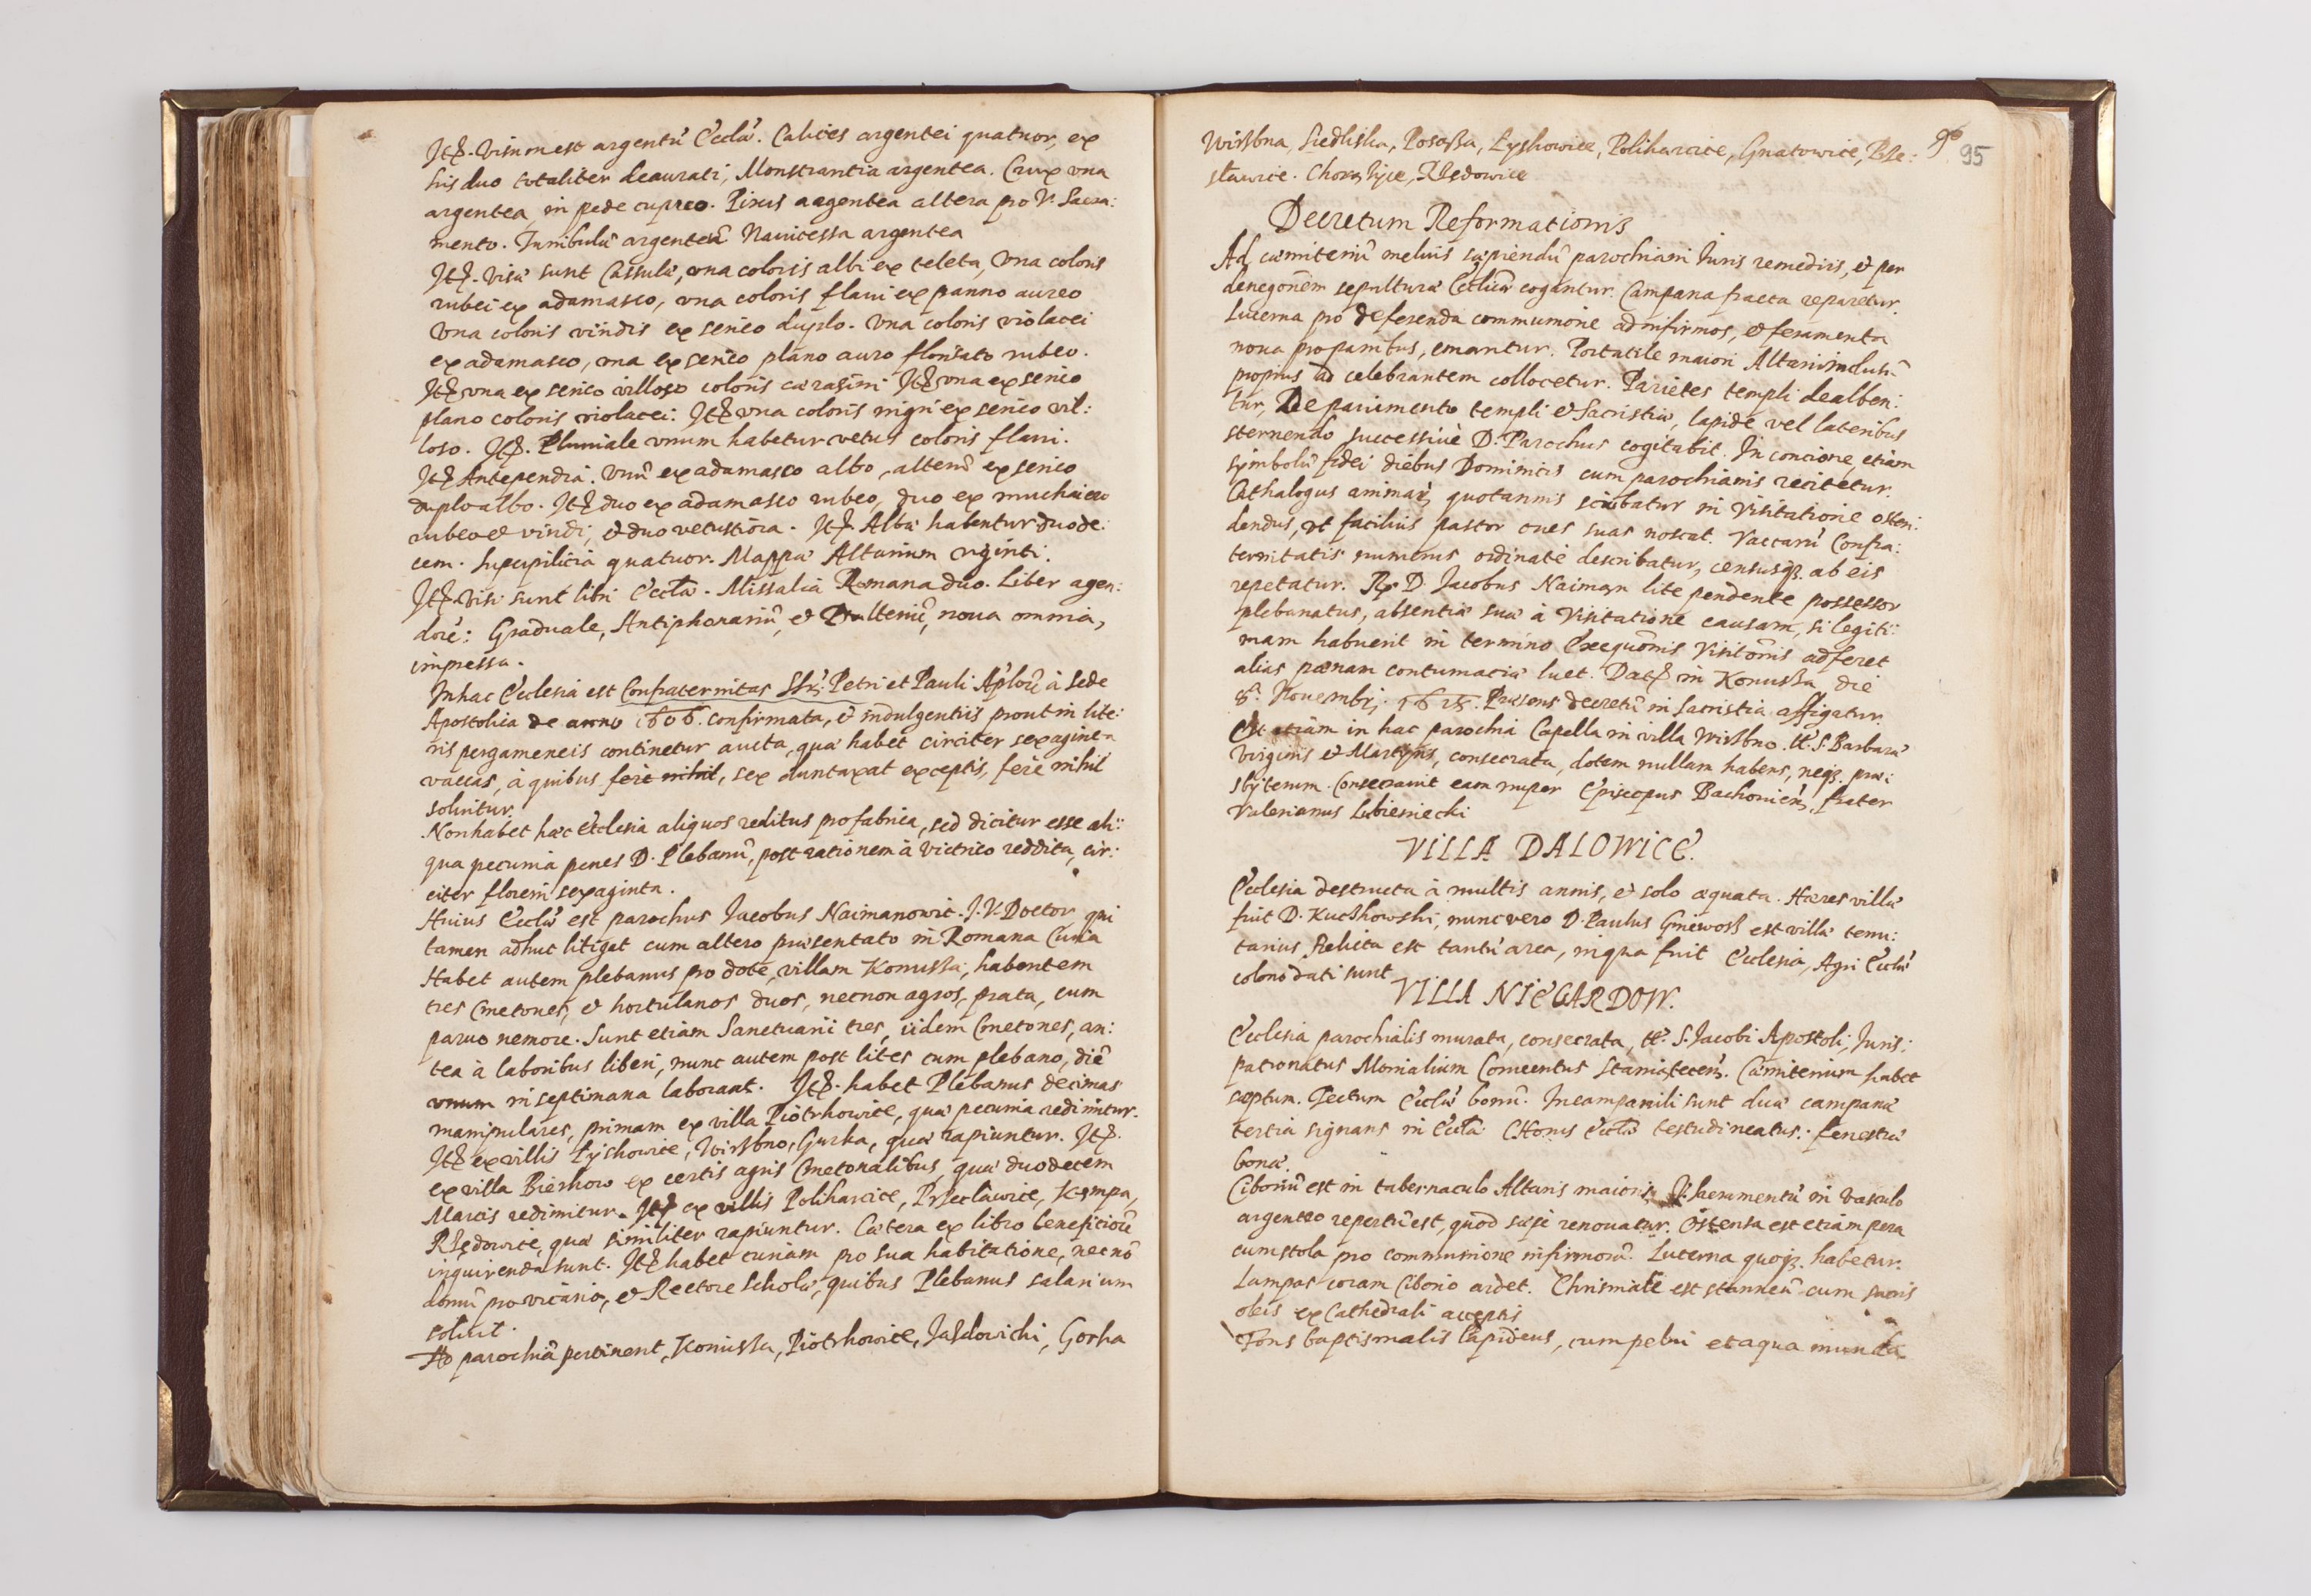 Itẽ. Visum est argentũ Eccłæ. Calices argentei quatuor, ex
his duo totaliter deaurati, Monstrantia argentea. Crux vna
argentea in pede cupreo. Pixis argentea altera pro V. Sacra:
mento. Turribulũ argenteũ Nauicella argentea
Itẽ. Visæ sunt Casulæ, vna coloris albi ex teleta, vna coloris
rubei ex adamasco, vna coloris flaui ex panno aureo
Vna coloris viridis ex serico duplo. Vna coloris violacei
ex adamasco, vna ex serico plano auro florisato rubeo.
Itẽ vna ex serico villoso coloris carasini Itẽ vna ex serico
plano coloris violacei: Itẽ vna coloris nigri ex serico vil:
loso. Itẽ. Pluuiale vnum habetur vetus coloris flaui.
Itẽ Antependia. Vnũ ex adamasco albo, alterũ ex serico
duplo albo. Itẽ duo ex adamasco rubeo, duo ex muchaiero
rubeo et viridi, et duo vetustiora. Itẽ Albæ habentur duode:
cem. Superpilicia quatuor. Mappæ Altarium viginti.
Itẽ. Visi sunt libri Eccłæ. Missalia Romana duo. Liber agen:
dorũ: Graduale, Antiphonariũ, et Psalteriũ, noua omnia,
impressa.
In hac Ecclesia est Confraternitas SS. Petri et Pauli Apłorũ à Sede
Apostolica de anno 1606. confirmata, et indulgentiis prout in lite:
ris pergameneis continetur aucta, quæ habet circiter sexaginta
vaccas, à quibus ferè nihil, sex duntaxat exceptis, ferè nihil
soluitur.
Non habet hæc Ecclesia aliquos reditus pro fabrica, sed dicitur esse ali:
qua pecunia penes D. Plebanũ, post rationem à Vitrico reddita, cir:
citer floreni sexaginta.
Huius Eccłæ est parochus Jacobus Naimanowic. J. V. Doctor, qui
tamen adhuc litigat cum altero præsentato in Romana Curia
Habet autem plebanus pro dote, villam Konussa, habentem
tres Cmetones, et hortulanos duos, necnon agros, prata, cum
paruo nemore. Sunt etiam Sanctuarii tres, iidem Cmetones, an:
tea à laboribus liberi, nunc autem post lites cum plebano, diẽ
vnum in septimana laborant. Itẽ. habet Plebanus decimas
manipulares, primam ex villa Piotrkowice, quæ pecunia redimitur.
Itẽ ex villis Lyskowice, Wirssbno, Gurka, quæ rapiuntur. Itẽ.
ex villa Bierkow ex certis agris Cmetonalibus, quæ duodecem
Marcis redimitur. Itẽ ex villis Polikarcice, Przeclawice, Kempa,
Rzędowice, quæ similiter rapiuntur. Cætera ex libro beneficiorũ
inquirenda sunt. Itẽ habet curiam pro sua habitatione, necnõ
domũ pro vicario, et Rectore Scholæ, quibus Plebanus salarium
soluit.
Ad parochiã pertinent, Konussa, Piotrkowice, Jazdowicki, Gorka
Wirssbna, Siedliska, Lyskowice, Polikarcice, Gnatowice, Prze: 90 95
slawice. Rzędowice
Decretum Reformationis
Ad cæmiteriũ melius sæpiendũ parochiani Iuris remediis, et per
denegonẽm sepulturæ Eccłicæ cogantur. Campana fracta reparetur.
Lucerna pro deferenda communione ad infirmos, et feramenta
noua pro panibus, emantur. Portatile maiori Altari inclusũ
propius ad celebrantem collocetur. Parietes templi dealben:
tur, De pauimento templi et Sacristiæ, lapide vel lateribus
sternendo successiuè D. Parochus cogitabit. In concione etiam
symbolũ fidei diebus Dominicis cum parochianis recitetur.
Cathalogus animarũ quotannis scribatur in Visitatione osten:
dendus, vt facilius pastor oues suas noscat. Vaccarũ Confra:
ternitatis numerus ordinatè describatur, censusq. ab eis
repetatur. R. D. Jacobus Naiman lite pendente possessor
plebanatus, absentiæ suæ à Visitatione causam, si legiti:
mam habuerit in termino Exequõnis Visitõnis adferet
alias pœnam contumaciæ luet. Datẽ in Konussa die
8. Nouembr. 1618. Præsens decretũ in Sacristia affigatur.
Est etiam in hac parochia Capella in villa Wirssbno. tt. S. Barbaræ
Virginis et Martyris, consecrata, dotem nullam habens, neq. præ:
sbyterum. Consecrauit eam nuper Episcopus Bachouieñ, frater
Valerianus Lubieniecki
VILLA DALOWICE.
Ecclesia destructa à multis annis, et solo æquata. Hæres villæ
fuit D. Kuczkowski, nunc vero D. Paulus Gniewosz est villæ tenu:
tarius, Relicta est tantũ area, in qua fuit Ecclesia, Agri Eccłæ
colono dati sunt
VILLA NIEGARDOW.
Ecclesia parochialis murata, consecrata, tt. S. Jacobi Apostoli, Iuris:
patronatus Monialium Conuentus Staniątecen. Cæmiterium habet
sæptum. Tectum Eccłæ bonũ. In campanili sunt duæ campanæ
tertia signans in Eccła Chorus Eccłæ testudineatus. fenestræ
bonæ.
Ciboriũ est in tabernaculo Altaris maioris, V. Sacramentũ in vasculo
argenteo repertũ est, quod sæpe renouatur. Ostensa est etiam pera
cum stola pro communione infirmorũ. Lucerna quoq. habetur.
Lampas coram Ciborio ardet. Chrismale est stanneũ cum sacris
oleis ex Cathedrali acceptis
Fons baptismalis lapideus, cum pelui et aqua munda